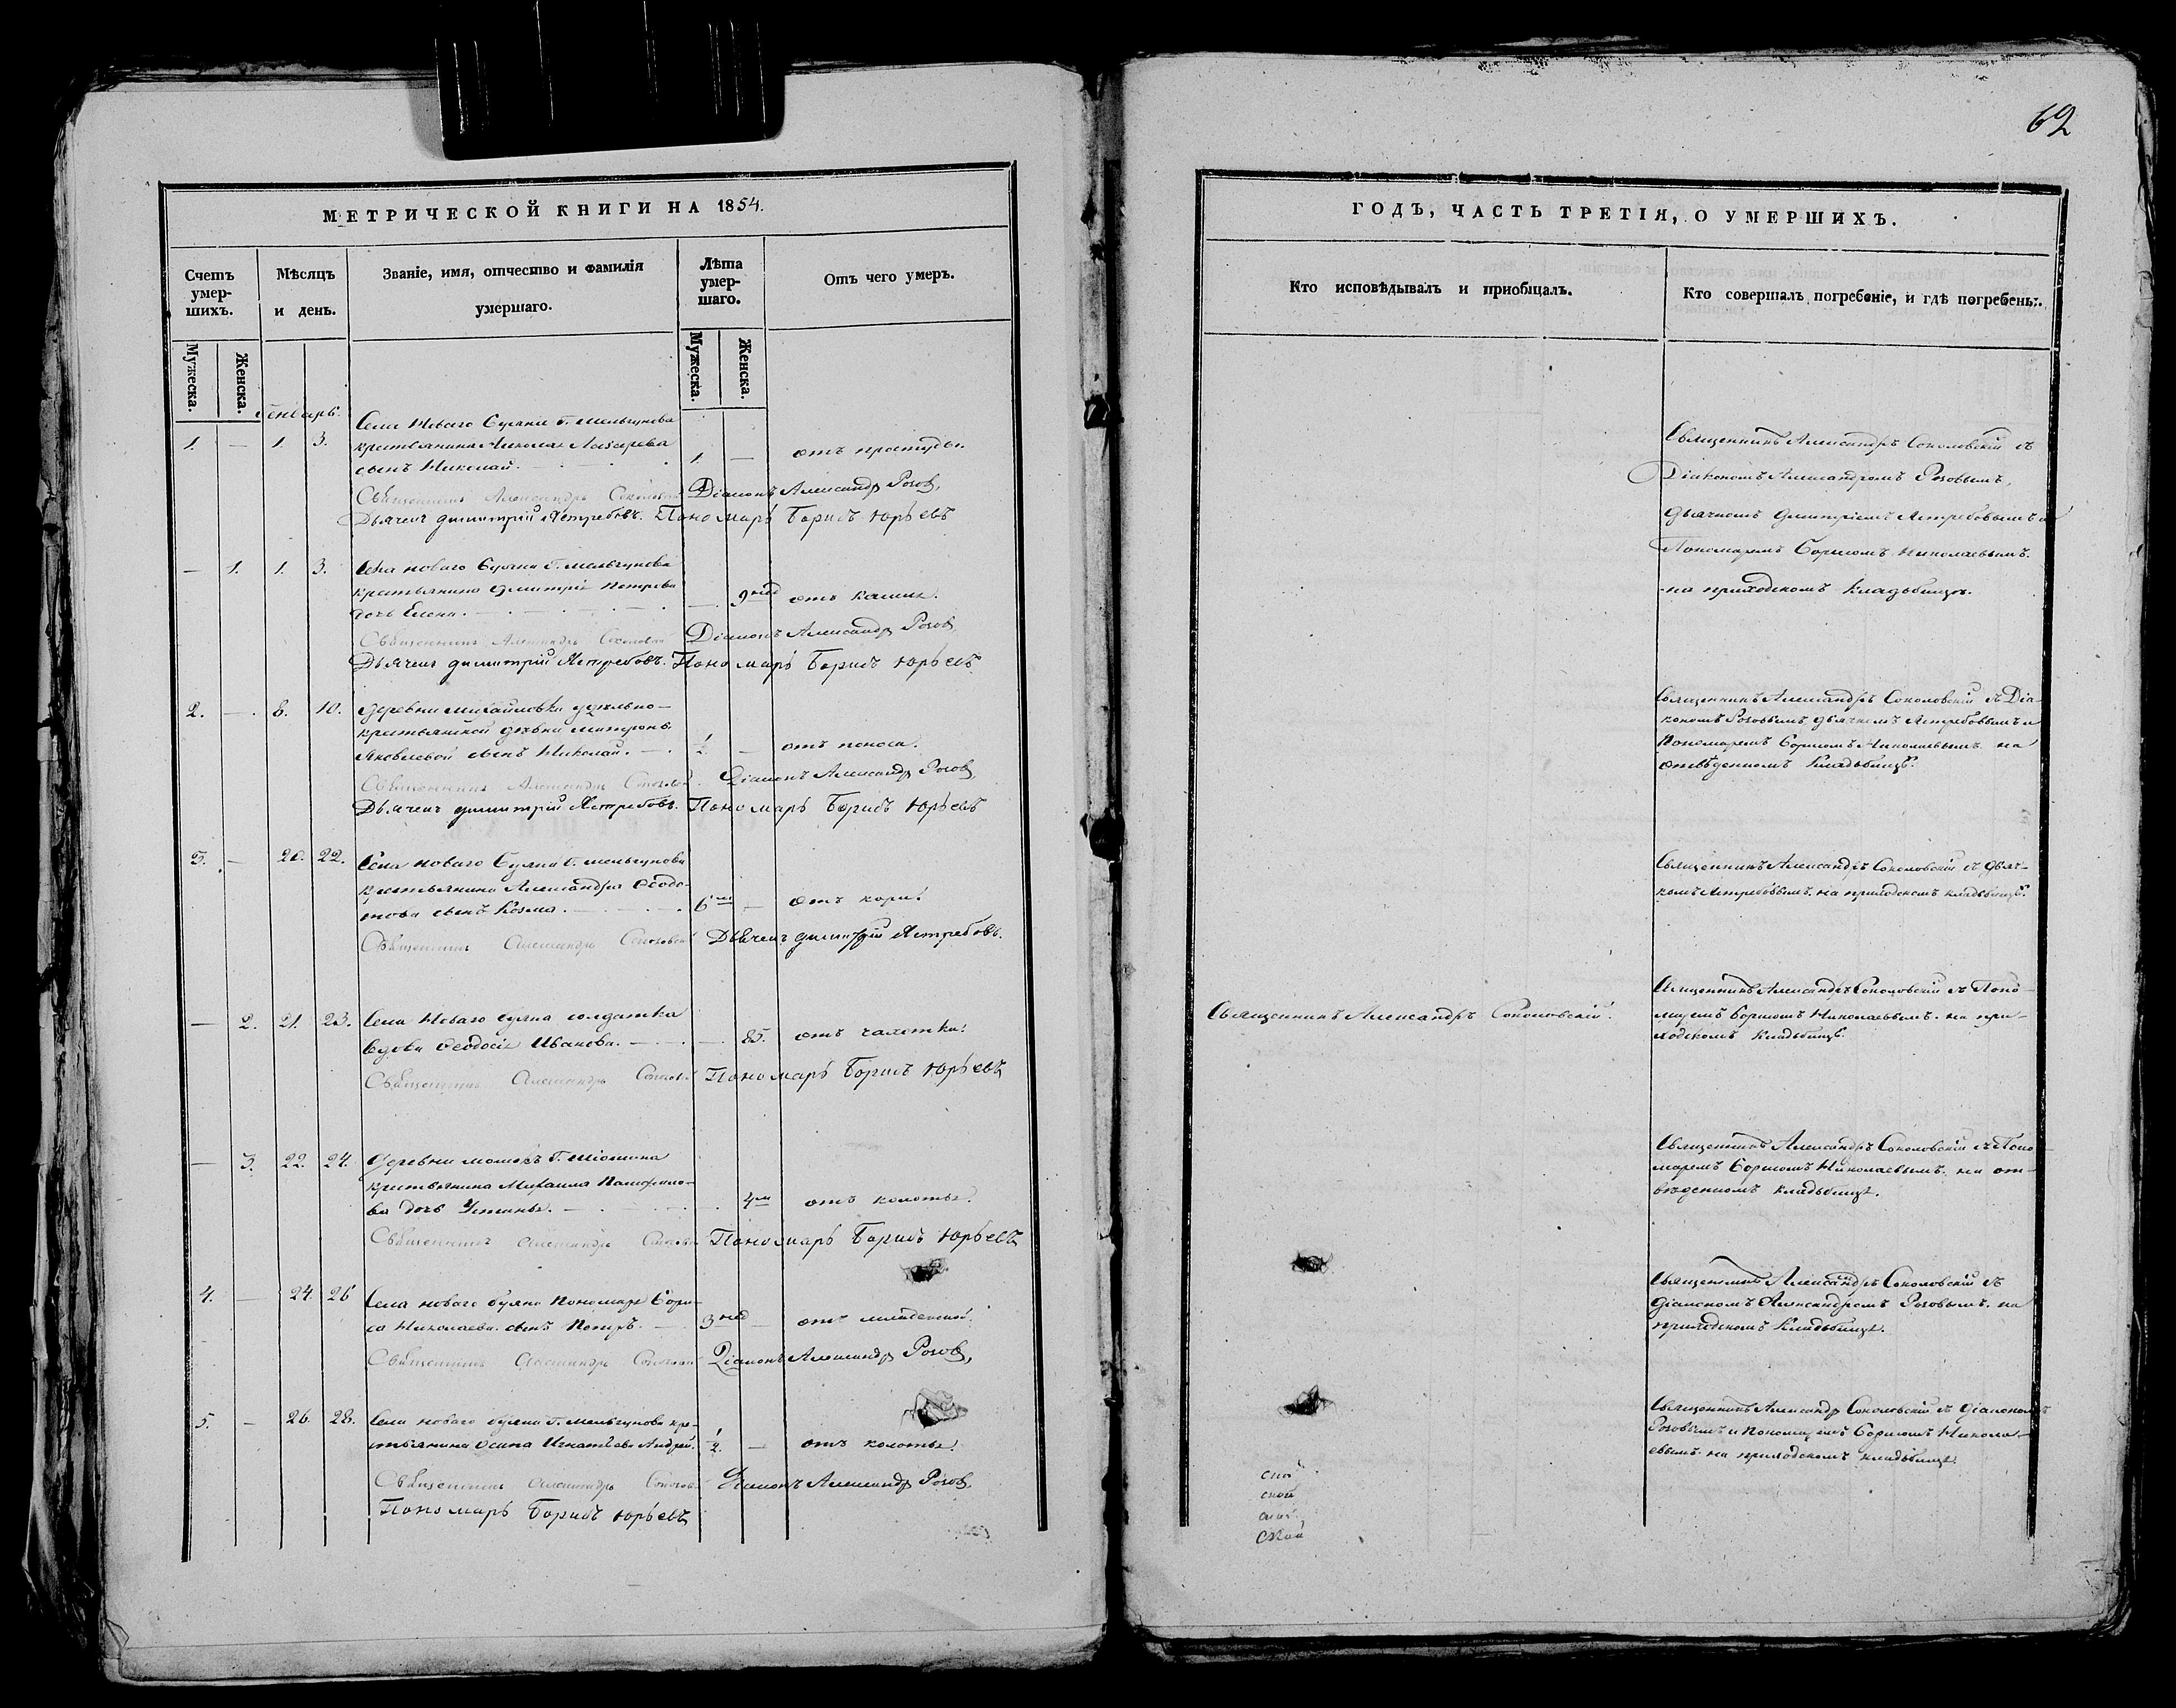 62
МЕТРИЧЕСКОЙ КНИГИ НА 1854.
Счетъ умер-шихъ.
Мѣсяцъ и день.
Званіе, имя, отчество и фамилія умершаго.
Лѣта умер-шаго.
Отъ чего умеръ.
Мужеска.
Женска.
Мужеска.
Женска.
Генварь.
1. — 1. 3.
Села Новаго Буяна г. Мельгунова
крестьянина Николая Лазарева
сынъ Николай.
1. — отъ простуды.
Священникъ Александръ Соколовскій Діаконъ Александръ Розовъ,
Дьячекъ Димитрій Ястребовъ. Пономарь Борисъ Юрьевъ
— 1. 1. 3.
Села новаго Буяна г. Мельгунова
крестьянина Димитрія Петрова
дочь Елена.
— 9 нед отъ кашля.
Священникъ Александръ Соколовскій Діаконъ Александръ Розовъ
Дьячекъ Димитрій Ястребовъ. Пономарь Борисъ Юрьевъ
2. — 8. 10.
Деревни Михайловки удѣльно-
крестьянской дѣвки Матроны
Яковлевой сынъ Николай.
1/2 — отъ поноса.
Священникъ Александръ Соколовскій Діаконъ Александръ Розовъ
Дьячекъ Димитрій Ястребовъ. Пономарь Борисъ Юрьевъ
3. — 20. 22.
Села новаго Буяна г. Мельгунова
крестьянина Александра Ѳеодо-
това сынъ Козма.
6 м — отъ кори.
Священникъ Александръ Соколовскій Дьячекъ Димитрій Ястребовъ.
— 2. 21. 23.
Села Новаго Буяна солдатка
вдова Ѳеодосія Иванова.
— 85. отъ чахотки.
Священникъ Александръ Соколовскій Пономарь Борисъ Юрьевъ
— 3. 22. 24.
крестьянина Михаила Памфило-
ва дочь Устинья.
4 м отъ колотья.
Священникъ Александръ Соколовскій Пономарь Борисъ Юрьевъ
4. — 24. 26
Села новаго Буяна Пономаря Бори-
са Николаева сынъ Петръ.
3 нед — отъ младенской.
Священникъ Александръ Соколовскій Діаконъ Александръ Розовъ,
5. — 26. 28.
Села новаго Буяна г. Мельгунова кре-
стьянина Осипа Игнатьева Андрей.
1/2. — отъ колотья.
Священникъ Александръ Соколовскій Діаконъ Александръ Розовъ,
Пономарь Борисъ Юрьевъ
ГОДЪ, ЧАСТЬ ТРЕТІЯ, О УМЕРШИХЪ.
Кто исповѣдывалъ и пріобщалъ.
Кто совершалъ погребеніе, и гдѣ погребены.
Священникъ Александръ Соколовскій съ
Діакономъ Александромъ Розовымъ,
дьячкомъ Димитріемъ Ястребовымъ и
Пономаремъ Борисомъ Николаевымъ.
на приходскомъ кладьбищѣ.
Священникъ Александръ Соколовскій съ Діа-
кономъ Розовымъ дьячкомъ Ястребовымъ и
Пономаремъ Борисомъ Николаевымъ на
отвѣденномъ кладьбищѣ.
Священникъ Александръ Соколовскій съ дьяч-
комъ Ястребовымъ. на приходскомъ кладьбищѣ.
Священникъ Александръ Соколовскій.
Священникъ Александръ Соколовскій съ Поно-
маремъ Борисомъ Николаевымъ. на при-
ходскомъ кладьбищѣ.
Священникъ Александръ Соколовскій съ Поно-
маремъ Борисомъ Николаевымъ. на от-
вѣденномъ кладьбищѣ.
Священникъ Александръ Соколовскій съ
діакономъ Александромъ Розовымъ. на
приходскомъ кладьбищѣ.
Священникъ Александръ Соколовскій съ діакономъ
Розовымъ и Пономаремъ Борисомъ Никола-
евымъ на приходскомъ кладьбищѣ.
ской
ской
ской
ской